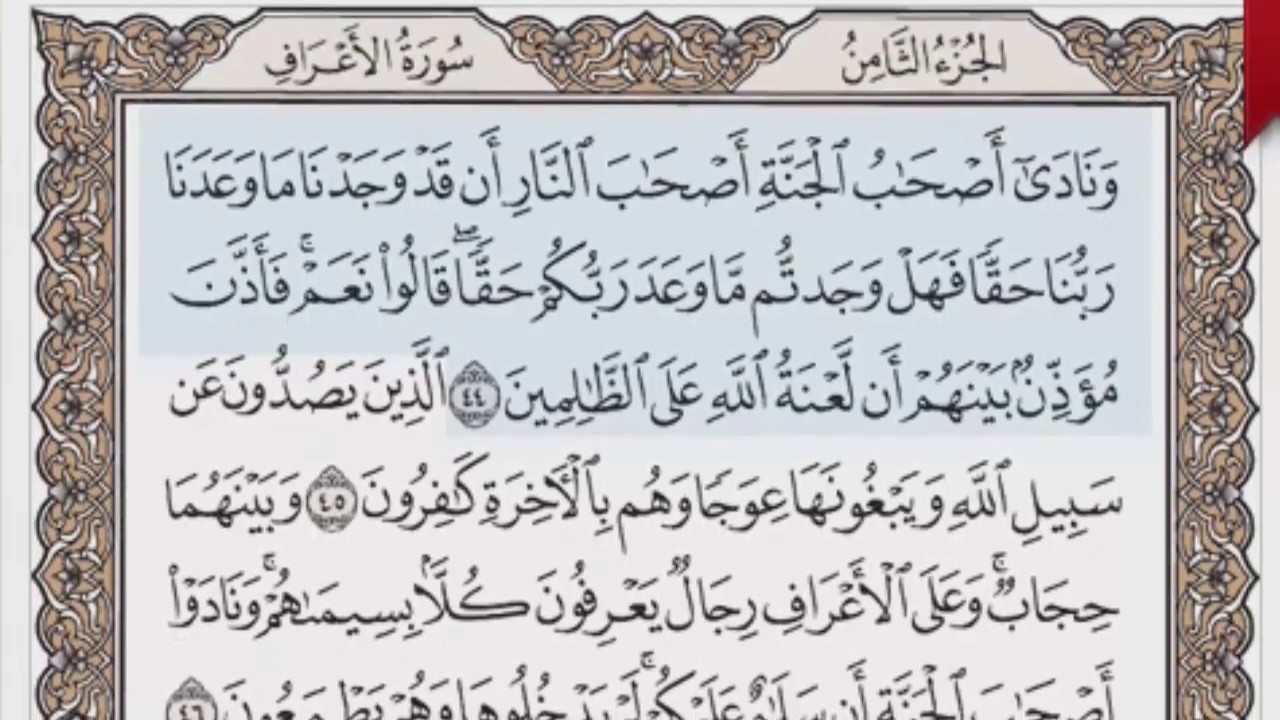 الجُزْءُ الثَّامِنُ
سُورَةُ الأَعْرَافِ
وَنَادَىٰٓ أَصْحَٰبُ ٱلْجَنَّةِ أَصْحَٰبَ ٱلنَّارِ أَن قَدْ وَجَدْنَا مَا وَعَدَنَا
رَبُّنَا حَقًّا فَهَلْ وَجَدتُّم مَّا وَعَدَ رَبُّكُمْ حَقًّا ۖ قَالُوا۟ نَعَمْ ۚ فَأَذَّنَ
مُؤَذِّنٌۢ بَيْنَهُمْ أَن لَّعْنَةُ ٱللَّهِ عَلَى ٱلظَّٰلِمِينَ ٤٤ ٱلَّذِينَ يَصُدُّونَ عَن
سَبِيلِ ٱللَّهِ وَيَبْغُونَهَا عِوَجًا وَهُم بِٱلْءَاخِرَةِ كَٰفِرُونَ ٤٥ وَبَيْنَهُمَا
حِجَابٌ ۚ وَعَلَى ٱلْأَعْرَافِ رِجَالٌ يَعْرِفُونَ كُلًّۢا بِسِيمَىٰهُمْ ۚ وَنَادَوْا۟
أَصْحَٰبَ ٱلْجَنَّةِ أَن سَلَٰمٌ عَلَيْكُمْ ۚ لَمْ يَدْخُلُوهَا وَهُمْ يَطْمَعُونَ ٤٦